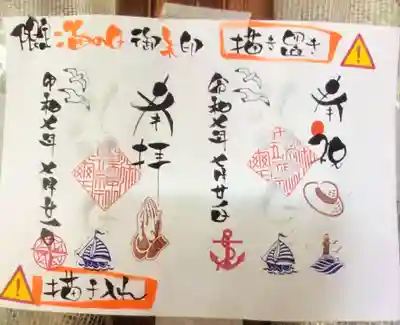 海の日 御朱印
描き置き
奉祝
令和七年 七月廿一日
奉拝
令和七年 七月廿一日